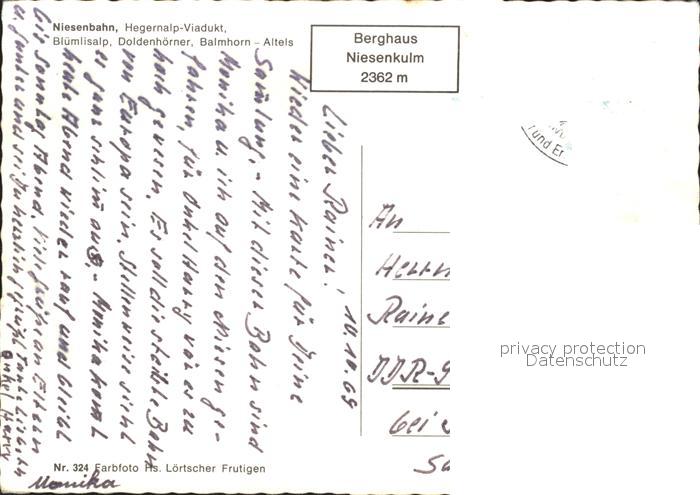 Niesenbahn, Hegernalp-Viadukt,
Blümlisalp, Doldenhörner, Balmhorn – Altels
Berghaus
Niesenkulm
2362 m
10.10.69
Lieber Rainer!
Wieder eine Karte für Deine
Sammlung. – Mit dieser Bahn sind
Monika u. ich auf den Niesen ge-
fahren, für Onkel Harry war es zu
hoch gewesen. Es soll die steilste Bahn
von Europa sein. Stellenweise sieht
es ganz schlimm aus – Monika kommt
heute Abend wieder rauf und bleibt
bis Sonntag Abend. Viele Grüße an Eltern
u. sei Du herzlich gegrüßt Tante
Onkel Harry
Monika
An
Herrn
Raine
DDR-9
bei
Sa
rund Er
Nr. 324 Farbfoto Hs. Lörtscher Frutigen
privacy protection
Datenschutz